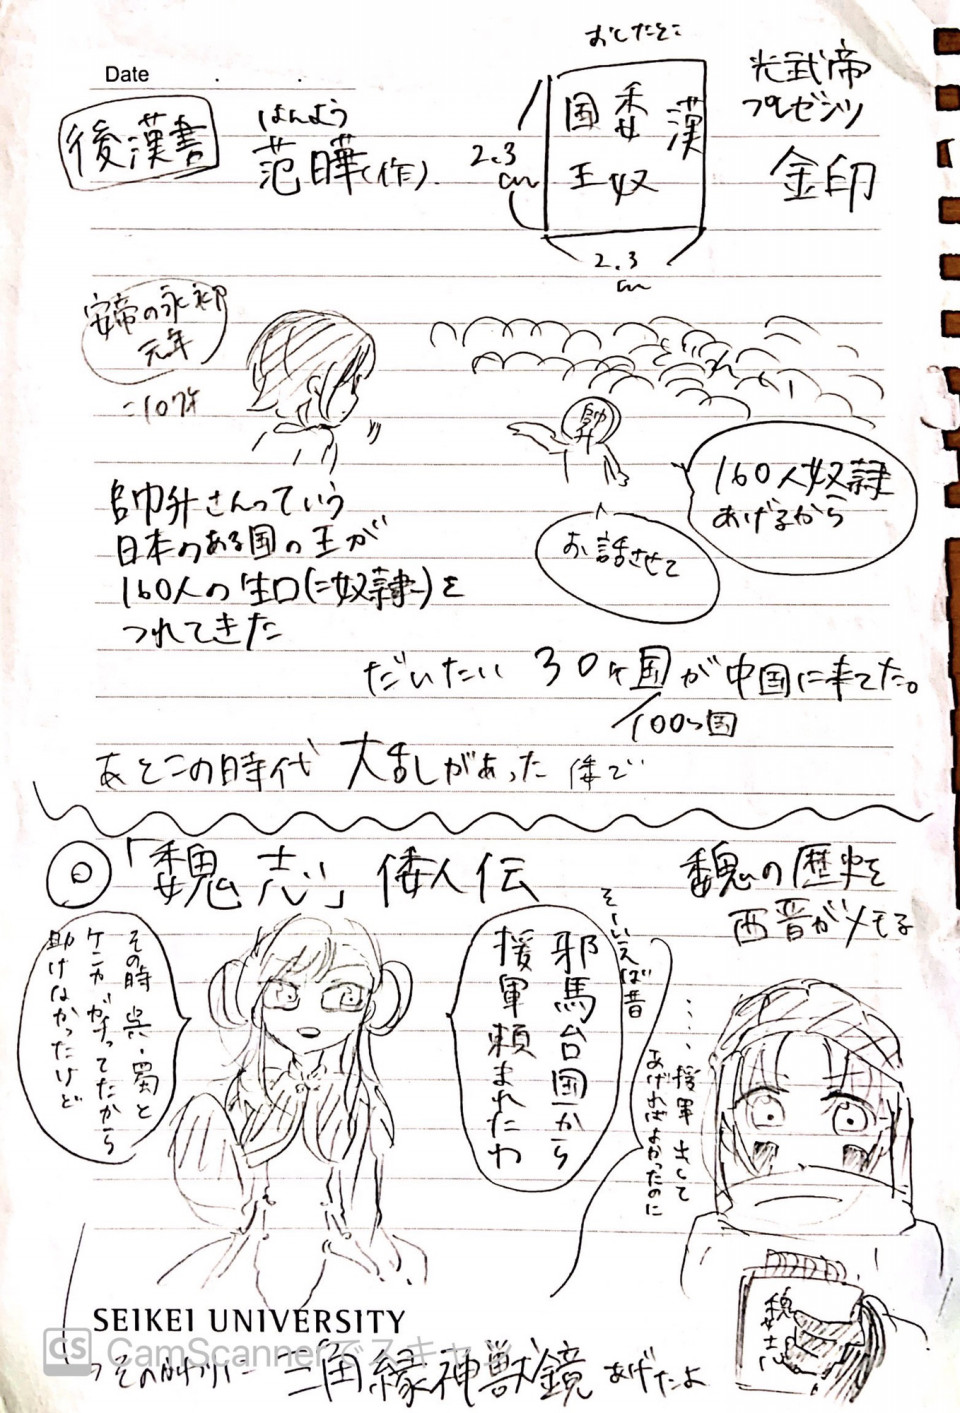 Date
後漢書
はんよう
范曄(作)
おしたそこ
漢
委奴
国王
2.3
cm
2.3
cm
光武帝
プレゼンツ
金印
安帝の永初
元年
=107年
帥升
160人奴隷
あげるから
お話させて
帥升さんっていう
日本のある国の王が
160人の生口(=奴隷)を
つれてきた
だいたい30ヶ国が中国に来てた。
100ヶ国
あとこの時代 大乱があった 倭で
◎「魏志」倭人伝
魏の歴史を
西晋がメモる
そーいえば昔
邪馬台国から
援軍頼まれたわ
その時 呉・蜀と
ケンカがすってたから
助けなかったけど
‥‥援軍 出して
あげればよかったのに
魏志
SEIKEI UNIVERSITY
CS CamScannerでスキャン
→そのかわりに 三角縁神獣鏡 あげたよ